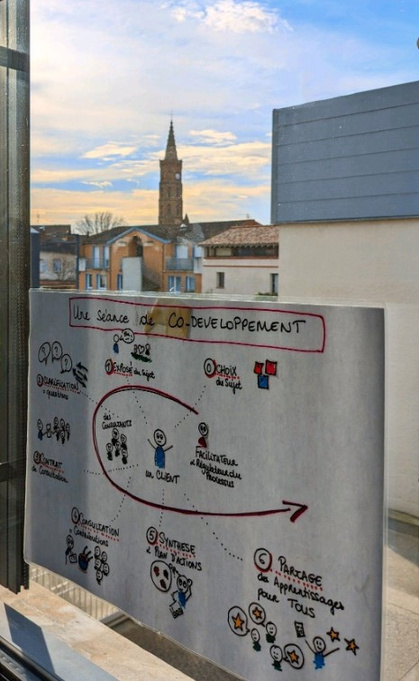 Une Séance de CO-DEVELOPPEMENT
0 CHOIX
du Sujet
1 EXPOSÉ du Sujet
2 CLARIFICATION
= questions
3 CONTRAT
de Consultation
des
CONSULTANTS
un CLIENT
FACILITATEUR
et Régulateur du
Processus
4 CONSULTATION
= Contributions
5 SYNTHESE
et PLAN D'ACTIONS
6 PARTAGE
des Apprentissages
pour TOUS